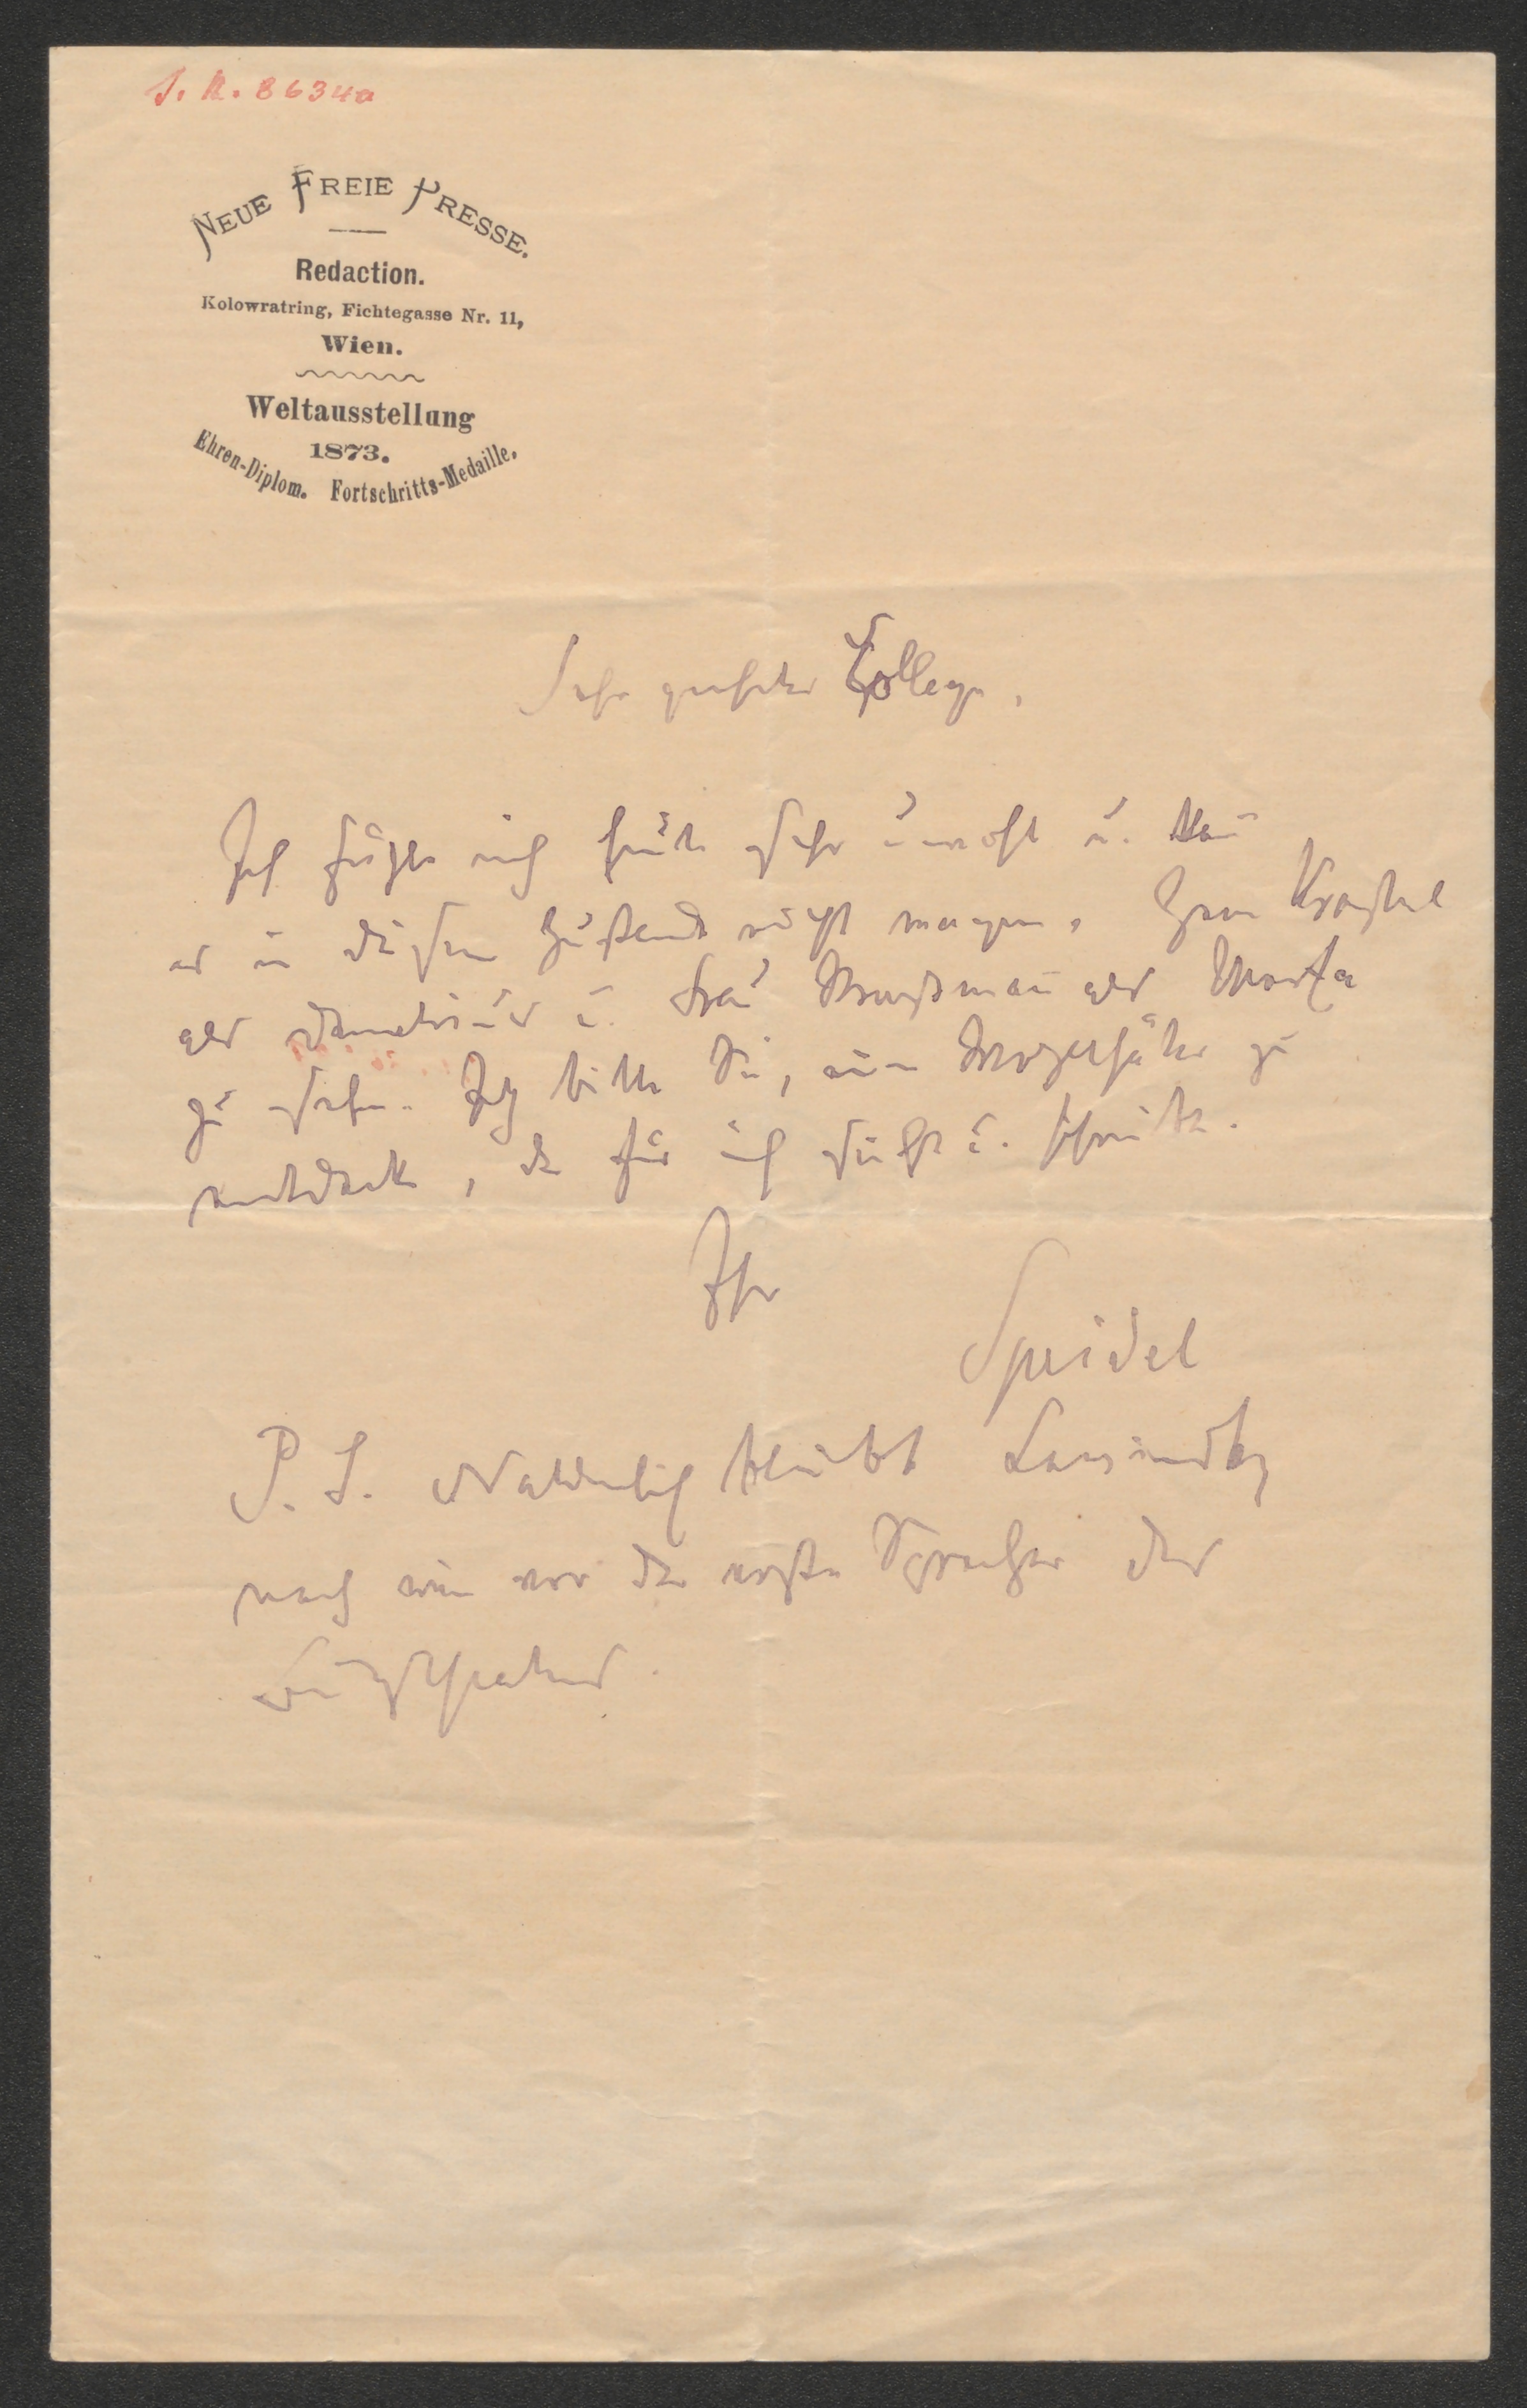 I. N. 8634a
NEUE FREIE PRESSE.
Redaction.
Kolowratring, Fichtegasse Nr. 11,
Wien.
Weltausstellung
1873.
Ehren-Diplom. Fortschritts-Medaille.
Sehr geehrter College,
Ich fühle mich heute sehr unwohl u. kann
es in diesem Zustand nicht wagen, Herrn Krastel
als Demetrius u. Frau als Marfa
zu sehen. Ich bitte Sie, einen zu
entdecken, der für mich sieht u. schreibt.
Ihr
Speidel
P. S. Natürlich bleibt Lewinsky
nach wie vor der erste Sprecher des
Burgtheaters.